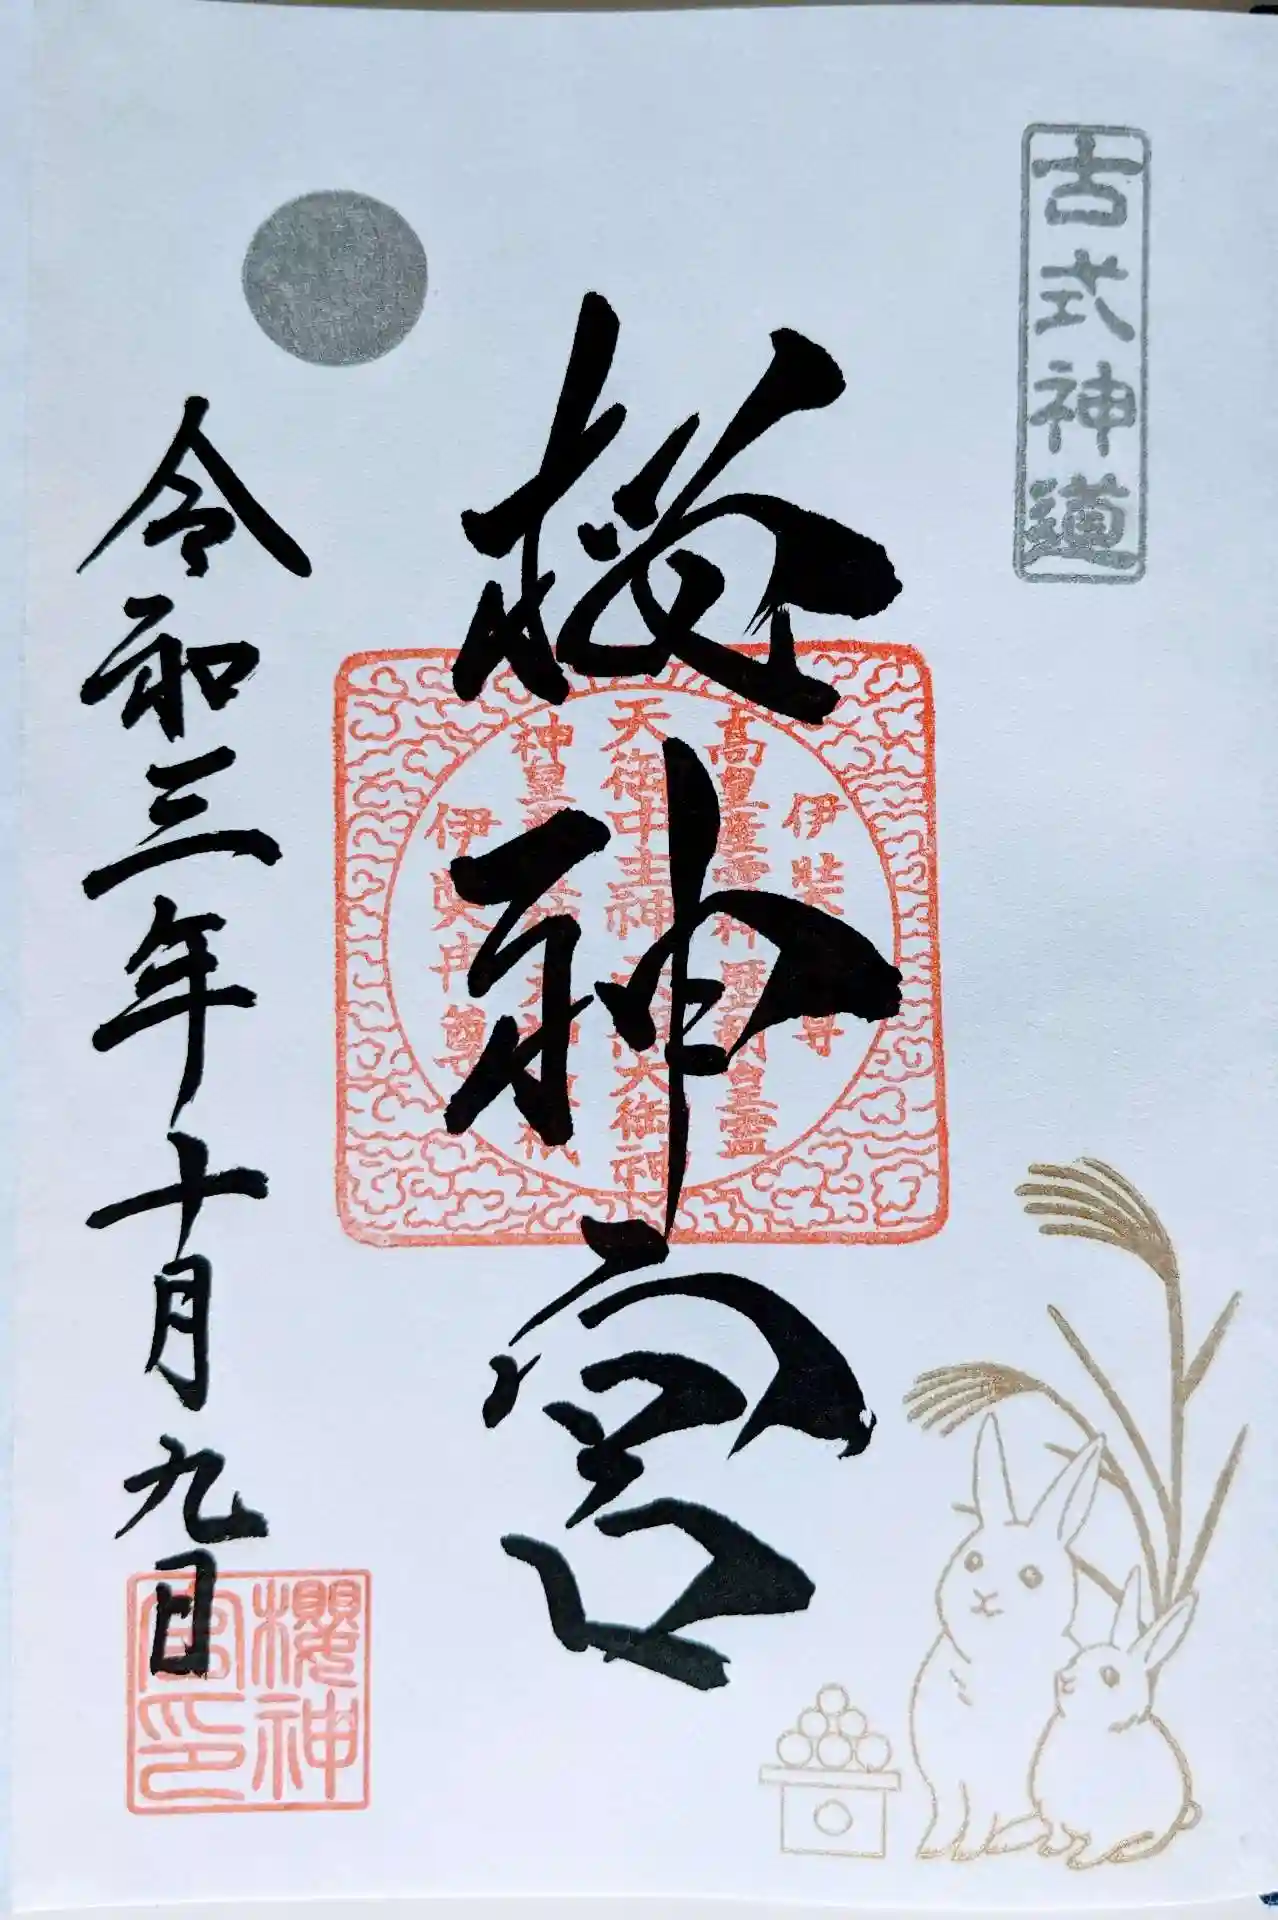 古式神道
櫻神宮
伊弉 尊
高皇産霊神 歴朝皇霊
天御中主神 天照大御神
神皇産霊神 天神地祇
伊弉冉尊
令和三年十月九日
櫻神
宮印